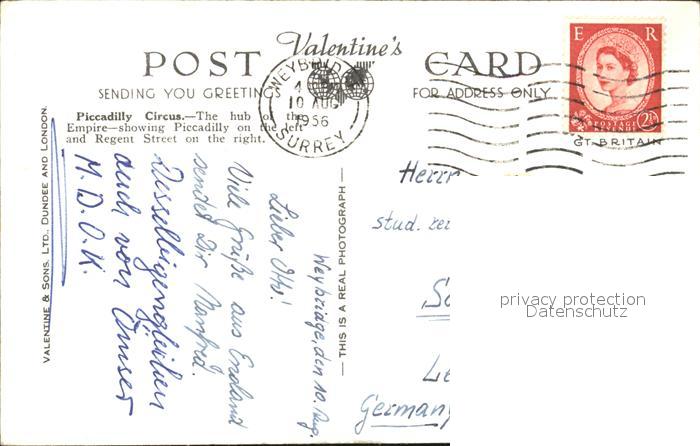 Valentine's
POST CARD
SENDING YOU GREETINGS
FOR ADDRESS ONLY
Piccadilly Circus.—The hub of the
Empire—showing Piccadilly on the left
and Regent Street on the right.
WEYBRIDGE
10 AUG
1956
SURREY
E R
POSTAGE
REVENUE
2½
GT. BRITAIN
VALENTINE & SONS, LTD., DUNDEE AND LONDON.
THIS IS A REAL PHOTOGRAPH
Weybridge, den 10. Aug.
Lieber Otto!
Viele Grüße aus England
sendet Dir Manfred.
auch von
M.D.O.K.
Herrn
stud.
Germany
privacy protection
Datenschutz